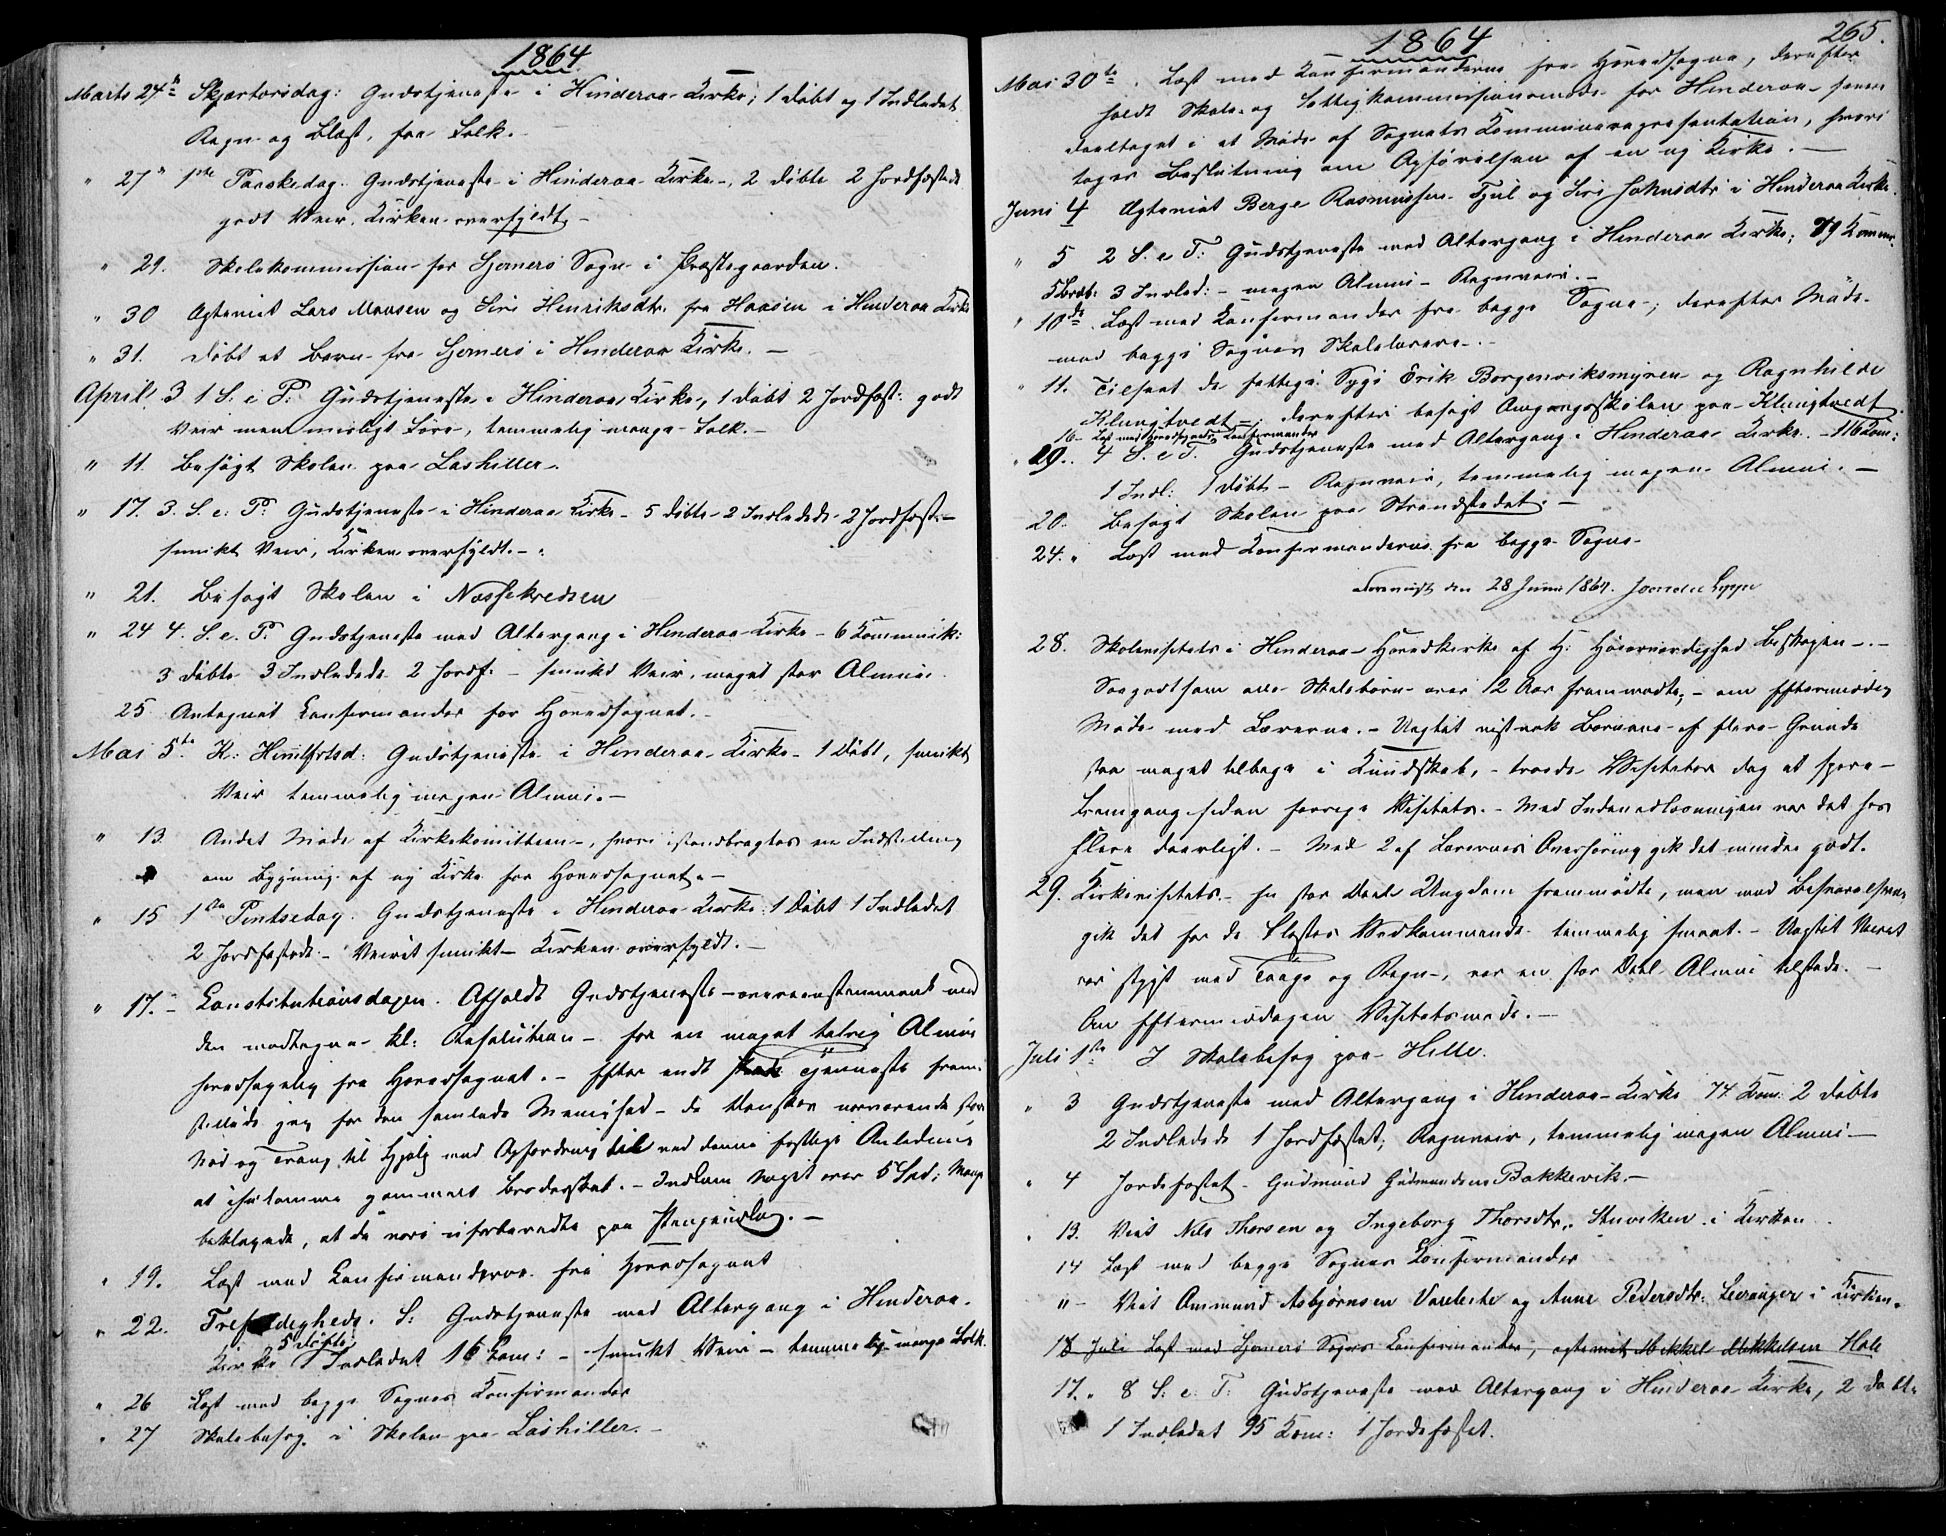 1864
Marts 24de Skjærtorsdag: Gudstjeneste i Hinderaa Kirke; 1 Døbt og 1 Indledet
Regn og Blæst, faa Folk.
" 27" 1ste Paaskedag. Gudstjeneste i Hinderaa Kirke, 2 døbte 2 Jordfæstede
godt Veir. Kirken overfyldt. –
" 29. Skolekommission for Sjernerö Sogn i Præstegaarden.
" 30 Ægteviet Lars Monsen og Siri Henriksdtr. fra i Hinderaa Kirke
" 31. døbt et Barn fra Sjernerö i Hinderaa Kirke. –
April 3 1 S. e P: Gudstjeneste i Hinderaa Kirke, 1 døbt 2 Jordfæst: godt
Veir men misligt Före, temmelig mange Folk. –
" 11. Besögt Skolen paa Lashiller.
" 17. 3. S. e. P: Gudstjeneste i Hinderaa Kirke – 5 döbte – 2 Indledede – 2 Jordfæst. –
smukt Veir, Kirken overfyldt. –
" 21. Besögt Skolen i Næssekredsen
" 24 4. S. e. P: Gudstjeneste med Altergang i Hinderaa Kirke – 6 Kommunik:
3 döbte 3 Indledede 2 Jordf: – smukt Veir, meget stor Almue.
25 Antegnet Konfirmander for Hovedsognet. –
Mai 5te K: Himlfrtsd: Gudstjeneste i Hinderaa Kirke – 1 Döbt, smukt
Veir temmelig megen Almue. –
" 13. Andet Möde af Kirkekomitteen, hvori istandbragtes en Indstilling
om Bygning af ny Kirke for Hovedsognet. –
" 15 1ste Pintsedag. Gudstjeneste i Hinderaa Kirke: 1 Döbt 1 Indledet
2 Jordfæstede. – Veiret smukt – Kirken overfyldt. –
" 17. – Constitutionsdagen. Afholdt Gudstjeneste – overensstemmende med
den modtagne kl: Resolution – for en meget talrig Almue
hovedsagelig fra Hovedsognet. – Efter endt Tjeneste frem-
stillede jeg for den samlede Menighed – de Danskes nærværende store
Nöd og Trang til Hjelp med Opfordring til ved denne festlige Anledning
at ihukomme gammelt Broderskab. – Indkom Noget over 5 Spd; Mange
beklagede, at de vare uforberedte paa Pengeudlæg. –
" 19. Læst med Konfirmanderne fra Hovedsognet
" 22. Trefoldigheds. S: Gudstjeneste med Altergang i Hinderaa
5 döbte
Kirke 1 Indledet 16 Kom: – smukt Veir – temmelig mange Folk.
" 26 Læst med begge Sognes Konfirmander
" 27 Skolebesög i Skolen paa Lashiller. –
1864
265.
Mai 30te. Læst med Konfirmanderne fra Hovedsogne, derefter
holdt Skole- og Fattigkommissionsmöde for Hinderaa – samt
deeltaget i et Möde af Sognets Kommunerepræsentation, hvori
toges Beslutning om Opförelsen af en ny Kirke. –
Juni 4 Ægteviet Berge Rasmussen Tjul og Siri Johnsdtr i Hinderaa Kirke.
" 5 2 S. e T: Gudstjeneste med Altergang i Hinderaa Kirke; 79 Kommu.
5 3 Indled: – megen Almue – Regnveir. –
" 10de Læst med Konfirmander fra begge Sogne; derefter Möde
med begge Sognes Skolelærere. –
" 11. Tilseet de fattige Syge Erik Borgenviksmyren og Ragnhilde
Klungtvedt; derefter besögt Omgangsskolen paa Klungtvedt.
16 – Læst med Hovedsognets Konfirmander
" 19. 4 S. e T. Gudstjeneste med Altergang i Hinderaa Kirke. – 116 Kom:
1 Indl: 1 döbt – Regnveir, temmelig megen Almue. –
20. Besögt Skolen paa Strandstedet. –
24. " Læst med Konfirmanderne fra begge Sogne
Foreviist den 28 Juni 1864.
28. Skolevisitats i Hinderaa Hovedkirke af H: Höiærværdighed Biskopen –. –
Saagodtsom alle Skolebörn over 12 Aar fremmødte; – om Eftermiddag
Möde med Lærerne. – Uagtet vistnok Börnene af flere Grunde
staa meget tilbage i Kundskab, – troede Visitator dog at spore –
Fremgang siden forrige Visitats. – Med Indenadlæsningen var det hos
Flere daarligt. – Med 2 af Lærernes Overhöring gik det mindre godt.
29. Kirkevisitats. – En stor Deel Ungdom fremmödte, men med Besvarelserne
gik det for de Flestes Vedkommende temmelig smaat. – Uagtet Veiret
var stygt med Taage og Regn –, var en stor Deel Almue tilstede. –
Om Eftermiddagen Visitatsmöde. –
Juli 1ste I Skolebesøg paa Hille.
" 3 Gudstjeneste med Altergang i Hinderaa Kirke 74 Kom: 2 döbte
2 Indledede 1 Jordfæstet; Regnveir, temmelig megen Almue –
" 4 Jordefæstet – Gudmund Gudmundsen Bakkevik –
" 13. Viet Nils Thorsen og Ingeborg Thorsdtr. Stuviken i Kirken.
14 Læst med begge Sognes Konfirmander
" – Viet Ommund Asbjørnsen Varaleite og Anne Pedersdtr. Leranger i Kirken.
18 Juli Læst med Sjernerö Sogns Konfirmander, ægteviet Mikkel Mikkelsen Hole
17. " 8 S. e. T: Gudstjeneste med Altergang i Hinderaa Kirke, 2 döbte
1 Indledet 95 Kom: 1 Jordefæstet.